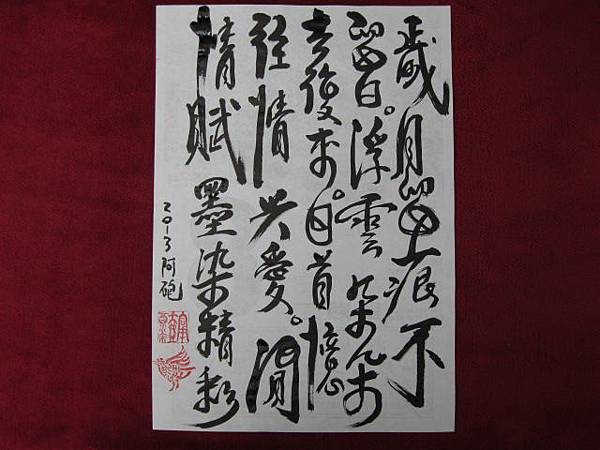 歲月留痕不
留白。浮雲朵朵
去復來。回首憶
往情與愛。閒
情賦墨染精彩
2013阿砲